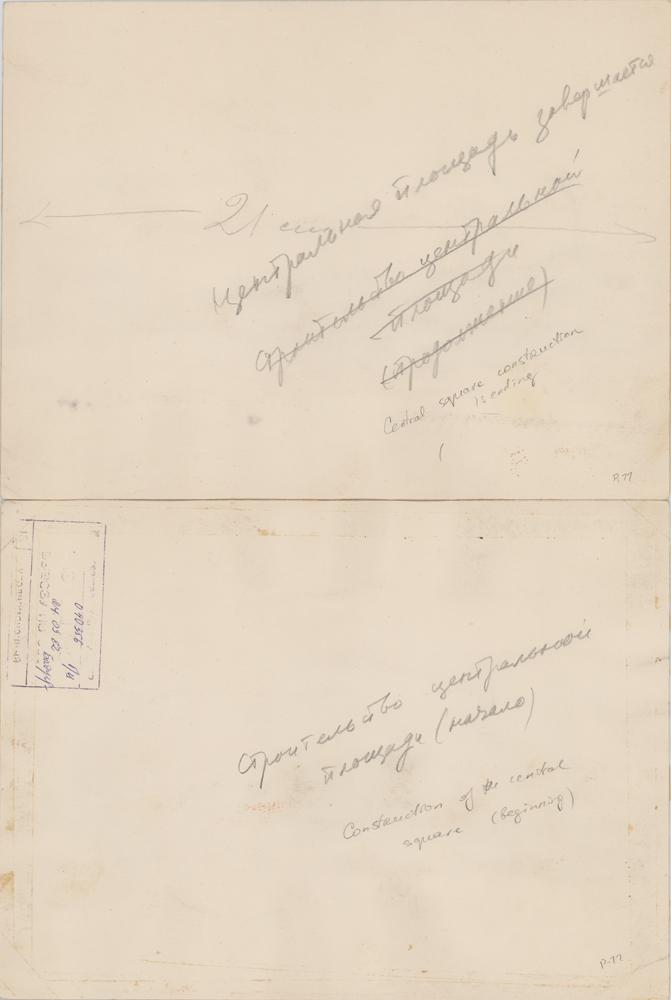 Центральная площадь завершается
21 см
строительство центральной
площади
(продолжение)
Central square construction
is ending
(
P.77
строительство центральной
площади (начало)
Construction of the central
square (Beginning)
P-77